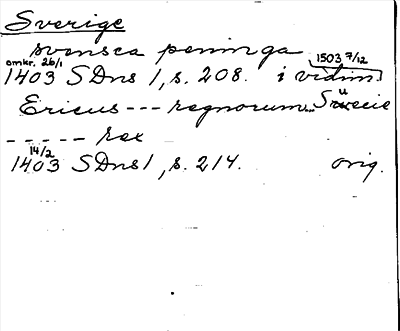 Sverige
svensca peninga
omkr. 26/1 1503 7/12
1403 SDns 1, s. 208. i vidim.
Ericus --- regnorum.. Suecie
----- rex
14/2
1403 SDns 1, s. 214. orig.